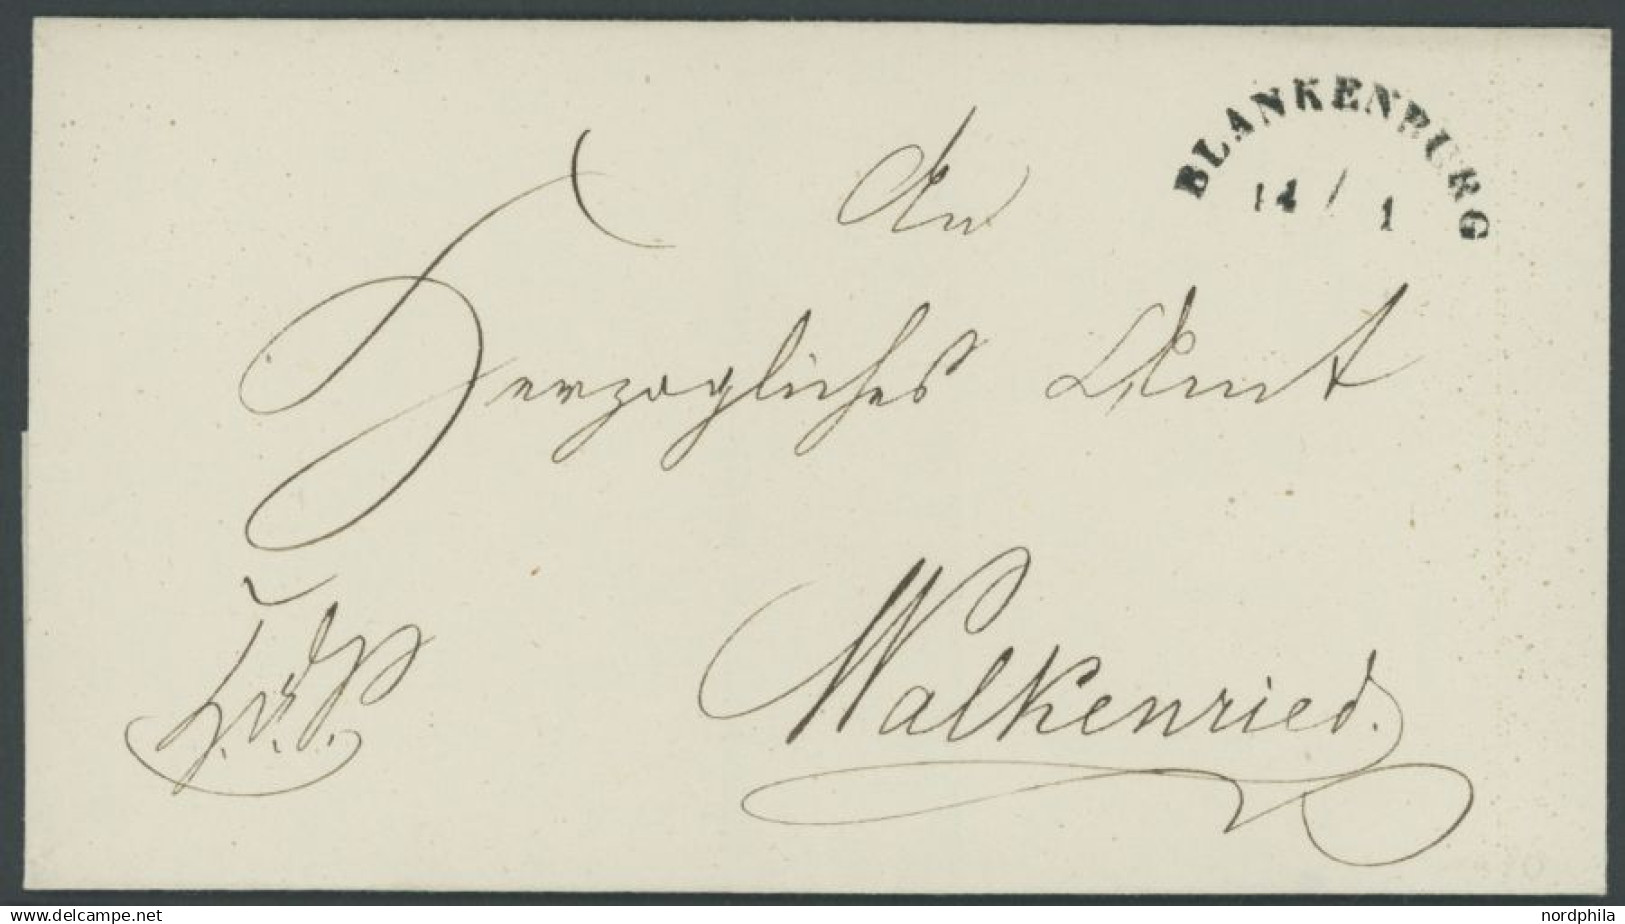 BLANKENBURG
14 / 1
An
Herzogliches Amt
Walkenried.
www.delcampe.net
nordphila